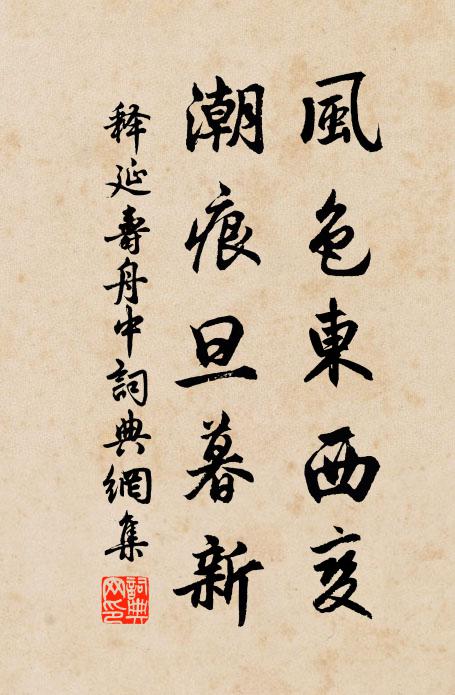 風色東西变
潮痕旦暮新
释延壽舟中詞典網集
詞典网印